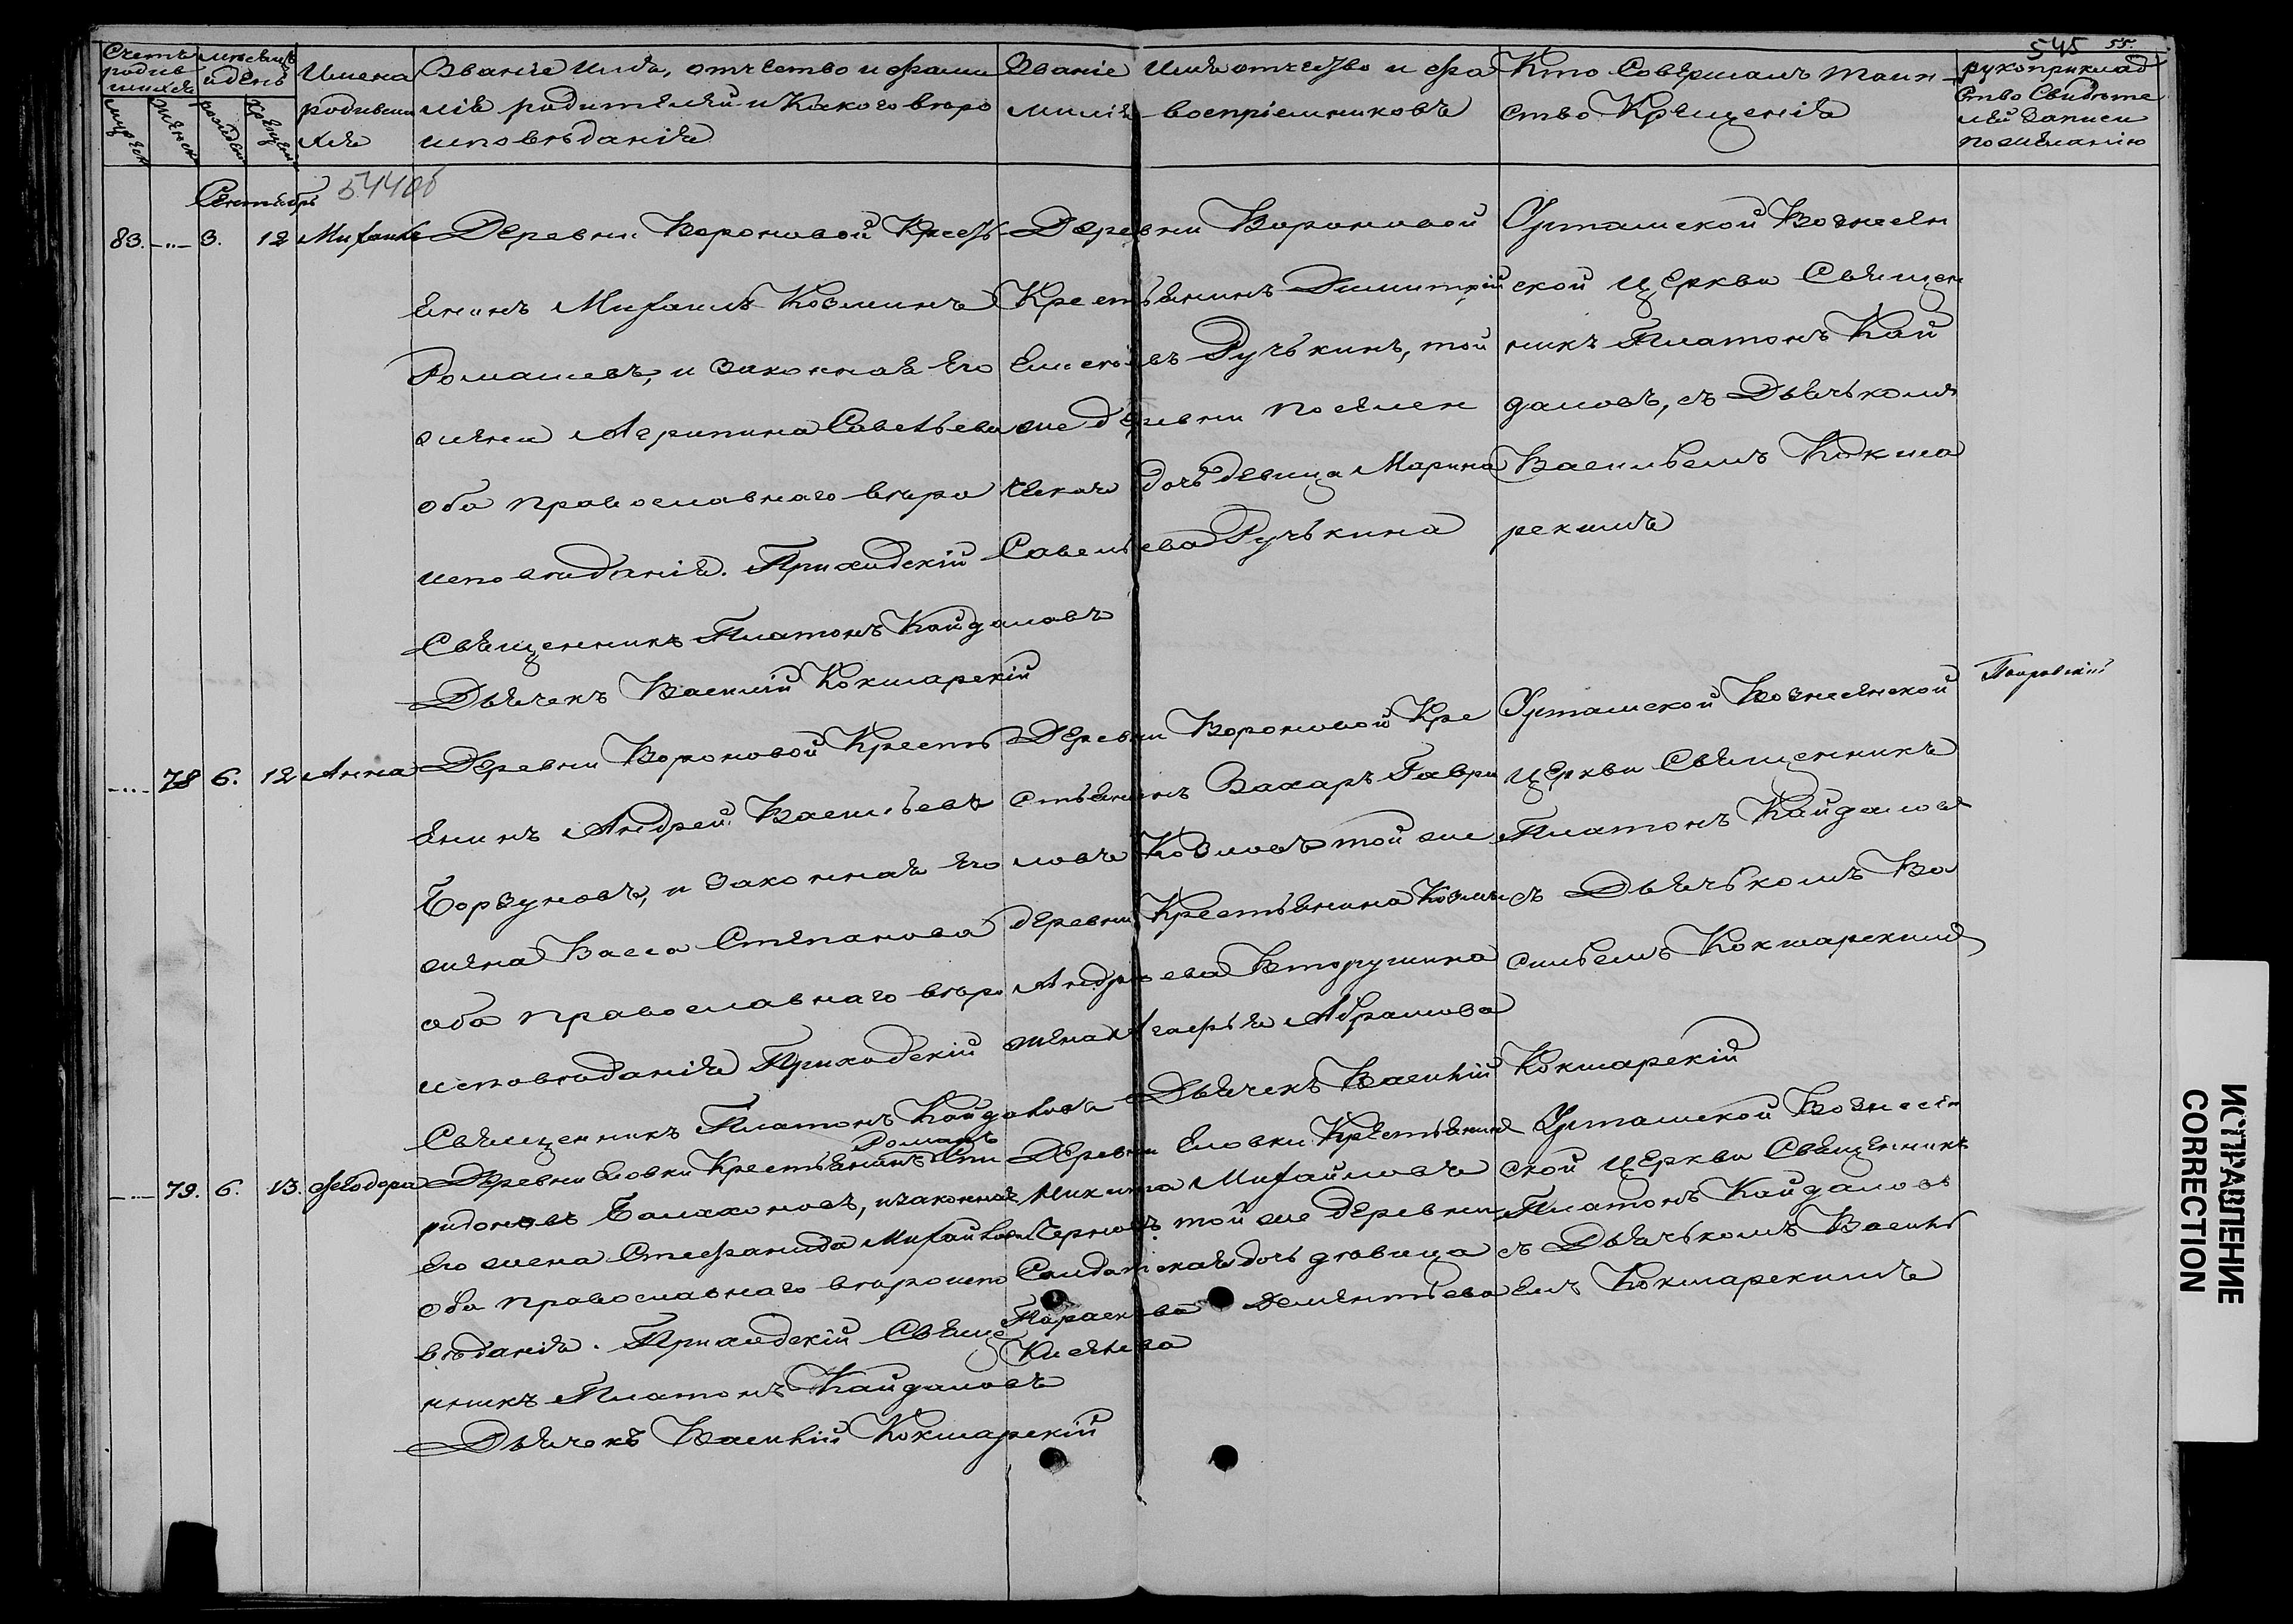 545 55.
Счетъ родившихся
мѣсяцъ и день
Имена родившихся
Званіе имя, отчество и фамилія родителей и какого вѣроисповѣданія
Званіе имя отчество и фамилія воспріемниковъ
Кто совершалъ таинство Крещенія
рукоприкладство свидѣтелей записи по желанію
мужеск
женск
рожден
крещен
Сентябрь
544об
83. -..- 3. 12 Михаилъ
Деревни Вороновой Кресть
янинъ Михаилъ Козминъ
Ромашевъ, и законная Его
жена Агрипина Савельева
оба православнаго вѣро
исповѣданія. Приходскій
Священникъ Платонъ Кайдаловъ
Дьячекъ Василій Кокшарскій
Деревни Вороновой
Крестьянинъ Димитрій
Ручькинъ, той
же деревни поселен
ческая дочь девица Марина
Савельева Ручькина
Урташской Вознесен
ской церкви Священ
никъ Платонъ Кай
даловъ, съ Дьячькомъ
Васильемъ Кокша
рскимъ
-..- 78 6. 12 Анна
Деревни Вороновой Кресть
янинъ Андрей Васильевъ
Борзуновъ, и законная его
жена Васса Степанова
оба православнаго вѣро
исповѣданія Приходскій
Священникъ Платонъ Кайдаловъ
Дьячекъ Василій Кокшарскій
Деревни Вороновой Кре
стьянинъ Захаръ Гаври
ловъ Козловъ той же
деревни Крестьянина Козмы
Андреева Вторушина
жена Агафья Абрамова
Урташской Вознесенской
церкви Священникъ
Платонъ Кайдаловъ
съ Дьячькомъ Ва
сильемъ Кокшарскимъ
Покровскій
-..- 79. 6. 13. Феодора
Романъ
Деревни Еловки Крестьянинъ Спи
ридоновъ Балахоновъ, и законная
Его жена Стефанида Михайлова
оба православнаго вѣроиспо
вѣданія. Приходскій Свяще
нникъ Платонъ Кайдаловъ
Дьячекъ Василій Кокшарскій
Деревни Еловки Крестьянинъ
Никита Михайловъ
Черновъ той же деревни
Солдатская дочь дѣвица
Параскева Дементьева
Киселева
Урташской Вознесен
ской церкви Священникъ
Платонъ Кайдаловъ
съ Дьячькомъ Василь
емъ Кокшарскимъ
ИСПРАВЛЕНИЕ
CORRECTION